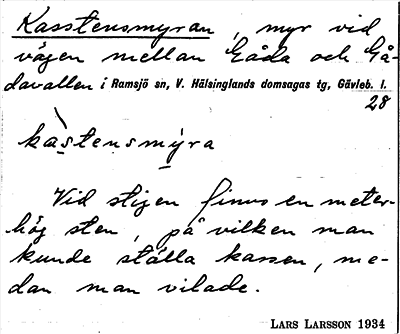 Kasstensmyran, myr vid
vägen mellan Gåda och Gå-
davallen i Ramsjö sn, V. Hälsinglands domsagas tg, Gävleb. l.
28
kàstensmýra
Vid stigen finns en meter-
hög sten, på vilken man
kunde ställa kassen, me-
dan man vilade.
LARS LARSSON 1934